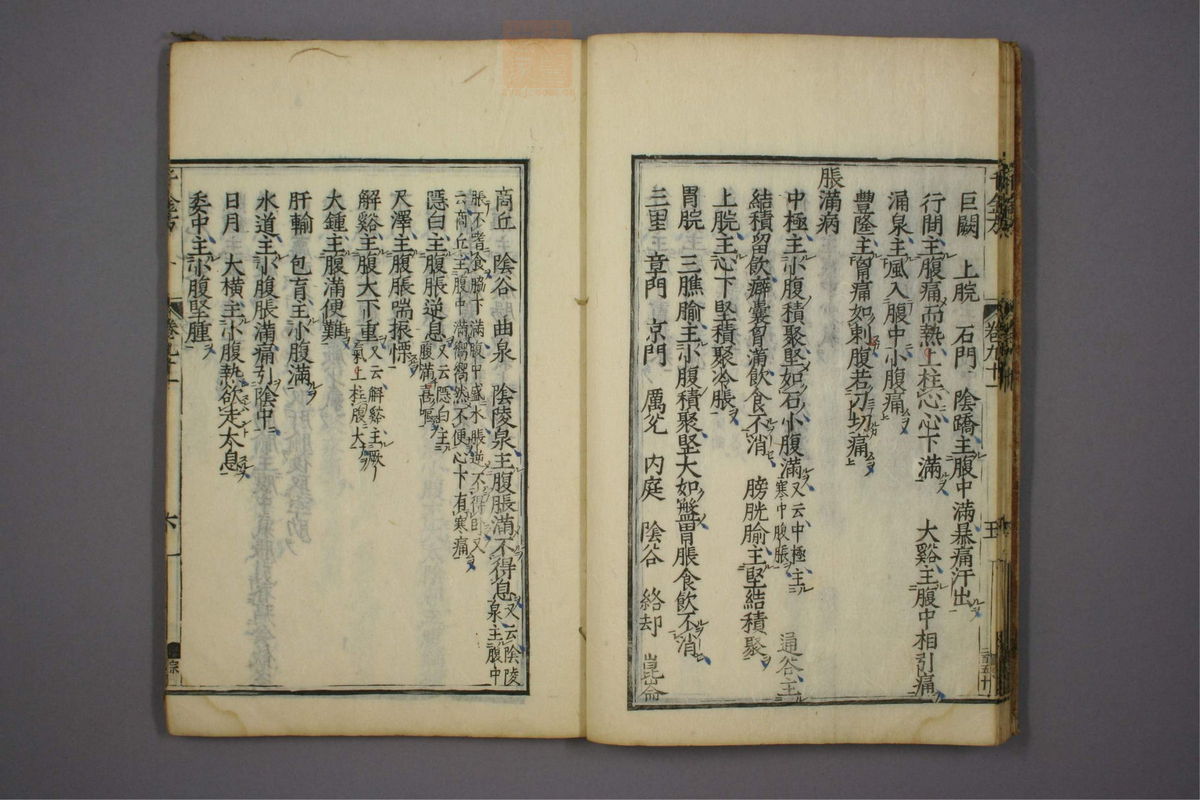 巨闕　上脘　石門　陰蹻主腹中滿暴痛汗出
行間主腹痛而熱上柱心心下滿　大谿主腹中相引痛
漏泉主風入腹中小腹痛
豐隆主胷痛如刺腹若刀切痛
脹滿病
中極主小腹積聚堅如石小腹滿又云中極主寒中腹脹　通谷主
結積留飲癖囊胷滿飲食不消　膀胱腧主堅結積聚
上脘主心下堅積聚冷脹
胃脘　三膲腧主小腹積聚堅大如盤胃脹食飲不消
三里　章門　京門　厲兊　内庭　陰谷　絡却　崑崙
卷九十一　五
商丘　陰谷　曲泉　陰陵泉主腹脹滿不得息又云陰陵泉主腹中
脹不嗜食脇下滿腹中盛水脹逆不得卧又
云商丘主腹中滿嚮嚮然不便心下有寒痛
隱白主腹脹逆息又云隱白主腹滿喜嘔
尺澤主腹脹喘振慄
解谿主腹大下重又云解谿主厥氣上柱腹大
大鍾主腹滿便難
肝輸　包肓主小腹滿
水道主小腹脹滿痛引陰中
日月　大橫主小腹熱欲走太息
委中主小腹堅腫
卷九十一　六